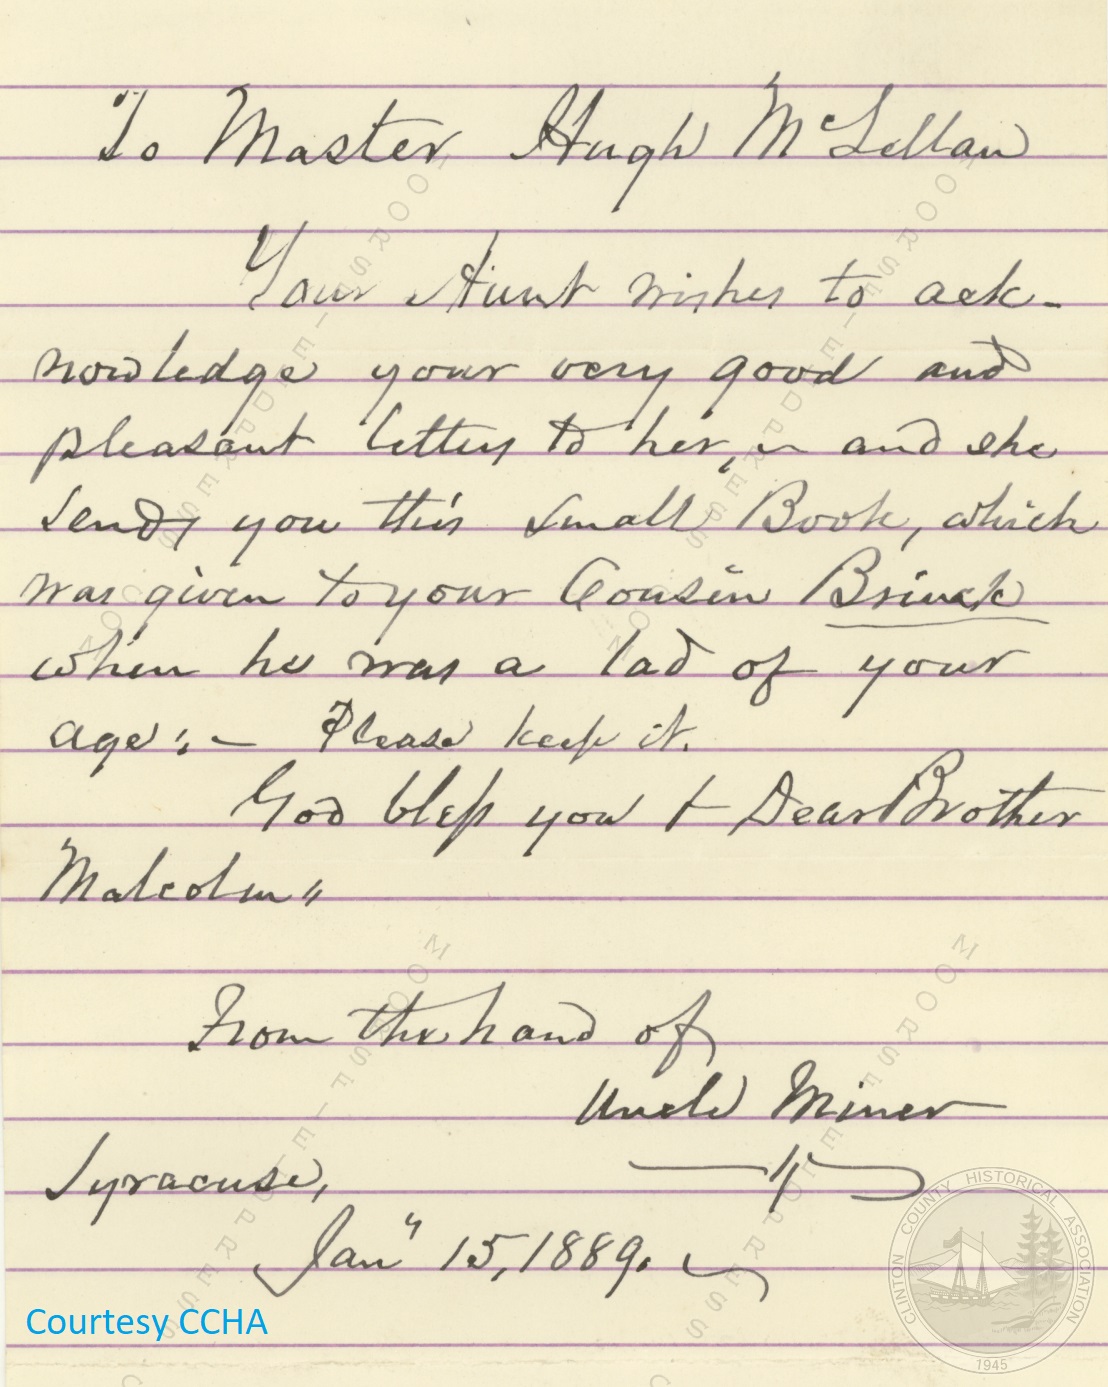 To Master Hugh McLellan
Your Aunt wishes to ack-
nowledge your very good and
pleasant letter to her, ~ and she
sends you this small Book, which
was given to your Cousin Brinck
when he was a lad of your
age:, – Please keep it.
God bless you & Dear Brother
Malcolm "
From the hand of
Uncle Miner
Syracuse,
Jan" 15, 1889.
Courtesy CCHA
CLINTON COUNTY HISTORICAL ASSOCIATION
1945